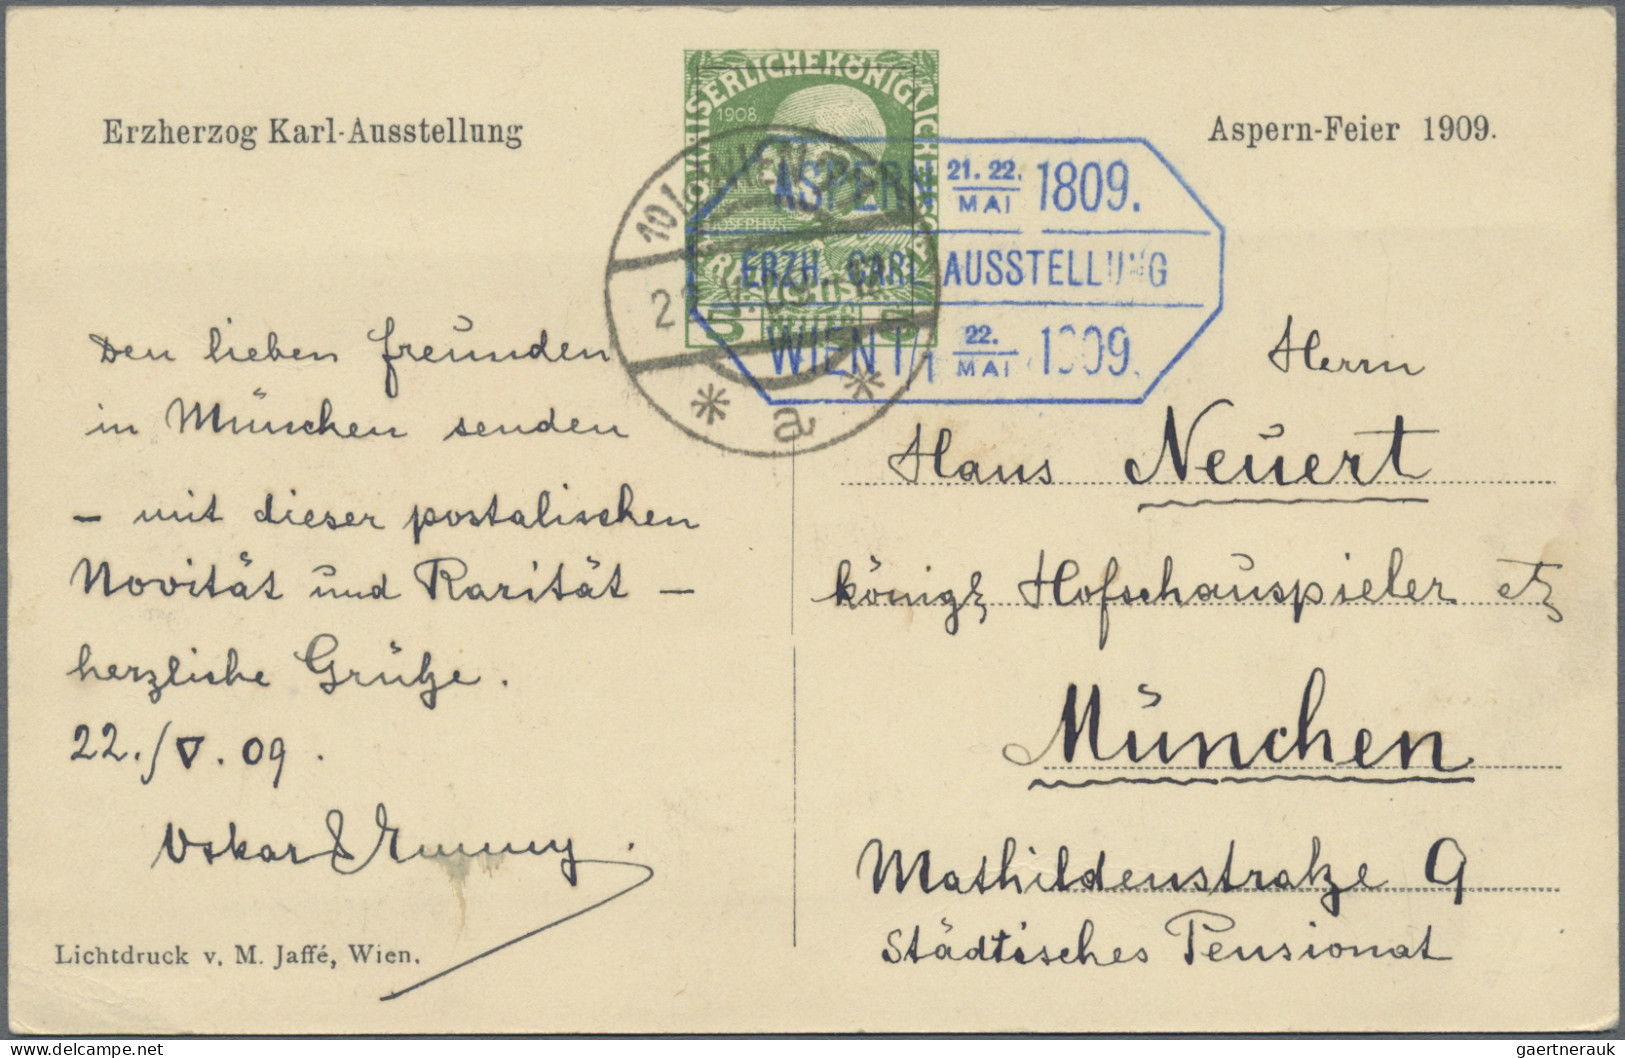 Erzherzog Karl-Ausstellung
Aspern-Feier 1909.
KAISERLICHEKÖNIGLICHE
1908
JOSEPHUS
5
ASPERN 21. 22. MAI 1809.
ERZH. CARL AUSSTELLUNG
WIEN 1/1 22. MAI 1909.
10/1 WIEN
* a *
Den lieben Freunden
in München senden
– mit dieser postalischen
Novität und Rarität –
herzliche Grüße.
22./V. 09.
Oskar & Emmy.
Lichtdruck v. M. Jaffé, Wien.
Herrn
Hans Neuert
königl. Hofschauspieler etz
München
Mathildenstraße 9
Städtisches Pensionat
gaertnerauk
the-collectors.com